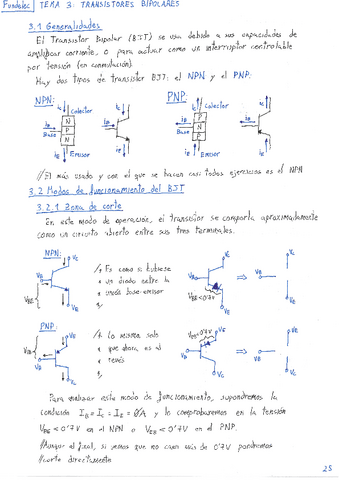 Fundelec TEMA 3: TRANSISTORES BIPOLARES
3.1 Generalidades
El Transistor Bipolar (BJT) se usa debido a sus capacidades de
amplificar corriente, o para actuar como un interruptor controlable
por tensión (en conmutación).
Hay dos tipos de transistor BJT: el NPN y el PNP:
NPN: PNP:
iC Colector iC Colector iC
N P
iB P iB iB N
Base N Base P
Emisor Emisor
iE iE iE iE
//El más usado y con el que se hacen casi todos ejercicios es el NPN
3.2 Modos de funcionamiento del BJT
3.2.1 Zona de corte
En este modo de operación, el transistor se comporta aproximadamente
como un circuito abierto entre sus tres terminales.
NPN: VC
// Es como si hubiese
un diodo entre la
unión base-emisor
VB VBE VE
VB VBE<0'7V VE ⇒ VB
PNP: VE
// Lo mismo solo
que ahora es al
revés
VB VC
VEB<0'7V VE VB VC ⇒ VB VC
Para analizar este modo de funcionamiento, supondremos la
condición IB = IC = IE = 0A y lo comprobaremos en la tensión
VBE < 0'7V en el NPN o VEB < 0'7V en el PNP.
//Aunque al final, si vemos que no caen más de 0'7V pondremos
//corte directamente
25